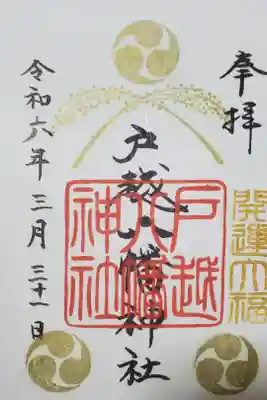 奉拝
開運大福
戸越八幡神社
戸越
八幡
神社
令和六年三月三十一日